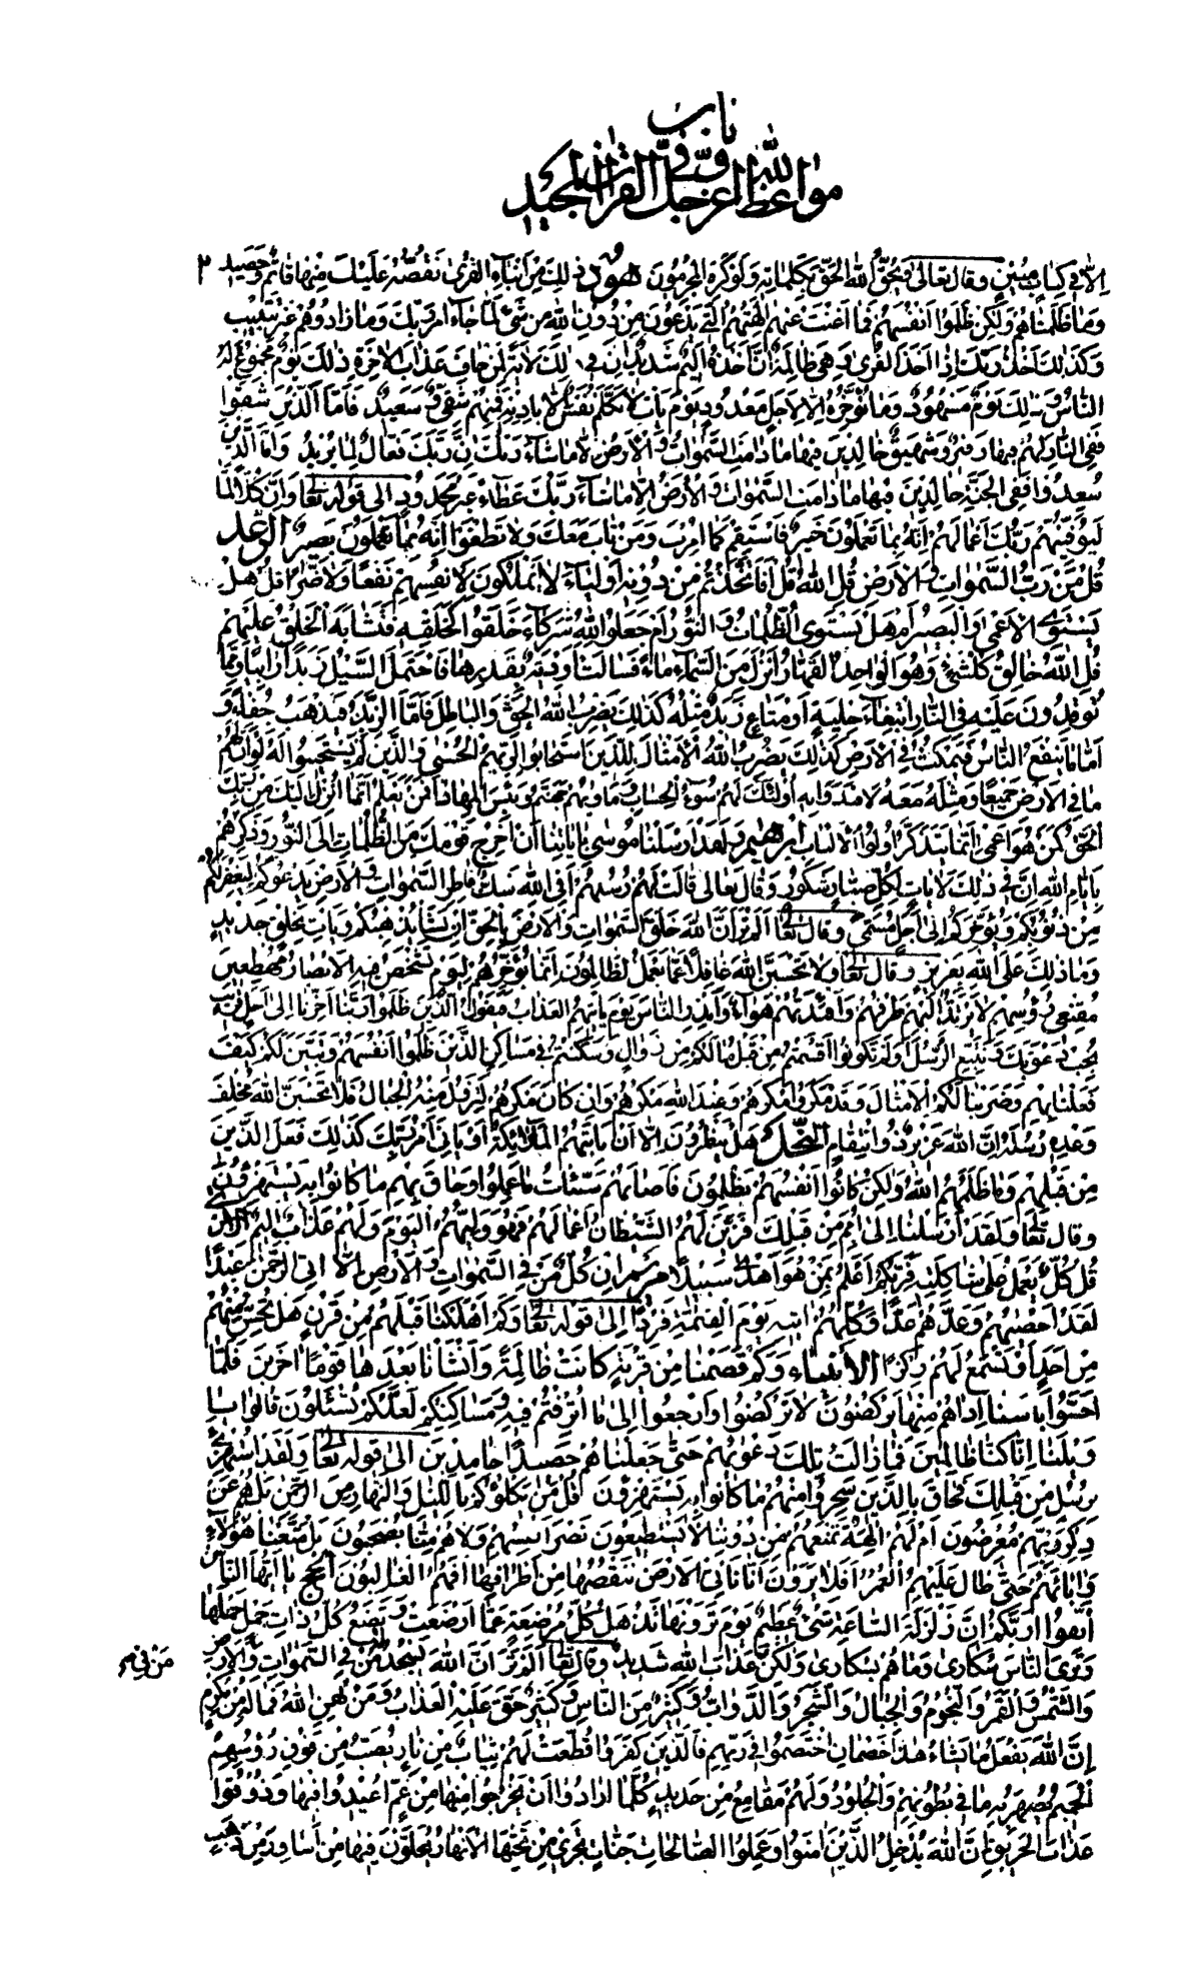 باب
مواعظ الله عز وجل في القرآن المجيد
إلا في كتاب مبين وقال تعالى ويحق الله الحق بكلماته ولو كره المجرمون هود ذلك من أنباء القرى نقصه عليك منها قائم وحصيد ٢
وما ظلمناهم ولكن ظلموا أنفسهم فما أغنت عنهم آلهتهم التي يدعون من دون الله من شئ لما جاء أمر ربك وما زادوهم غير تتبيب
وكذلك أخذ ربك إذا أخذ القرى وهي ظالمة إن أخذه أليم شديد إن في ذلك لآية لمن خاف عذاب الآخرة ذلك يوم مجموع له
الناس وذلك يوم مشهود وما نؤخره إلا لأجل معدود يوم يأت لا تكلم نفس إلا بإذنه فمنهم شقي وسعيد فأما الذين شقوا
ففي النار لهم فيها زفير وشهيق خالدين فيها ما دامت السموات والأرض إلا ما شاء ربك إن ربك فعال لما يريد وأما الذين
سعدوا ففي الجنة خالدين فيها ما دامت السموات والأرض إلا ما شاء ربك عطاء غير مجذوذ إلى قوله تعالى وإن كلا لما
ليوفينهم ربك أعمالهم إنه بما يعملون خبير فاستقم كما أمرت ومن تاب معك ولا تطغوا إنه بما تعملون بصير الرعد
قل من رب السموات والأرض قل الله قل أفاتخذتم من دونه أولياء لا يملكون لأنفسهم نفعا ولا ضرا قل هل
يستوي الأعمى والبصير أم هل تستوي الظلمات والنور أم جعلوا لله شركاء خلقوا كخلقه فتشابه الخلق عليهم
قل الله خالق كل شئ وهو الواحد القهار أنزل من السماء ماء فسالت أودية بقدرها فاحتمل السيل زبدا رابيا ومما
توقدون عليه في النار ابتغاء حلية أو متاع زبد مثله كذلك يضرب الله الحق والباطل فأما الزبد فيذهب جفاء و
أما ما ينفع الناس فيمكث في الأرض كذلك يضرب الله الأمثال للذين استجابوا لربهم الحسنى والذين لم يستجيبوا له لو أن لهم
ما في الأرض جميعا ومثله معه لافتدوا به أولئك لهم سوء الحساب ومأويهم جهنم وبئس المهاد أفمن يعلم أنما أنزل إليك من ربك
الحق كمن هو أعمى إنما يتذكر أولوا الألباب إبراهيم ولقد أرسلنا موسى بآياتنا أن أخرج قومك من الظلمات إلى النور وذكرهم
بأيام الله إن في ذلك لآيات لكل صبار شكور وقال تعالى قالت لهم رسلهم أفي الله شك فاطر السموات والأرض يدعوكم ليغفر لكم
من ذنوبكم ويؤخركم إلى أجل مسمى وقال تعالى ألم تر أن الله خلق السموات والأرض بالحق إن يشأ يذهبكم ويأت بخلق جديد
وما ذلك على الله بعزيز وقال تعالى ولا تحسبن الله غافلا عما يعمل الظالمون إنما يؤخرهم ليوم تشخص فيه الأبصار مهطعين
مقنعي رؤسهم لا يرتد إليهم طرفهم وأفئدتهم هواء وأنذر الناس يوم يأتيهم العذاب فيقول الذين ظلموا ربنا أخرنا إلى أجل قريب
نجب دعوتك ونتبع الرسل أولم تكونوا أقسمتم من قبل ما لكم من زوال وسكنتم في مساكن الذين ظلموا أنفسهم وتبين لكم كيف
فعلنا بهم وضربنا لكم الأمثال وقد مكروا مكرهم وعند الله مكرهم وإن كان مكرهم لتزول منه الجبال فلا تحسبن الله مخلف
وعده رسله إن الله عزيز ذو انتقام النحل هل ينظرون إلا أن يأتيهم الملائكة أو يأتي أمر ربك كذلك فعل الذين
من قبلهم وما ظلمهم الله ولكن كانوا أنفسهم يظلمون فأصابهم سيئات ما عملوا وحاق بهم ما كانوا به يستهزؤن
وقال تعالى ولقد أرسلنا إلى أمم من قبلك فزين لهم الشيطان أعمالهم فهو وليهم اليوم ولهم عذاب أليم أسرى
قل كل يعمل على شاكلته فربكم أعلم بمن هو أهدى سبيلا مريم إن كل من في السموات والأرض إلا آتي الرحمن عبدا
لقد أحصيهم وعدهم عدا وكلهم آتيه يوم القيمة فردا إلى قوله تعالى وكم أهلكنا قبلهم من قرن هل تحس منهم
من أحد أو تسمع لهم ركزا الأنبياء وكم قصمنا من قرية كانت ظالمة وأنشأنا بعدها قوما آخرين فلما
أحسوا بأسنا إذا هم منها يركضون لا تركضوا وارجعوا إلى ما أترفتم فيه ومساكنكم لعلكم تسئلون قالوا يا
ويلنا إنا كنا ظالمين فما زالت تلك دعويهم حتى جعلناهم حصيدا خامدين إلى قوله تعالى ولقد استهزئ
برسل من قبلك فحاق بالذين سخروا منهم ما كانوا به يستهزؤن قل من يكلؤكم بالليل والنهار من الرحمن بل هم عن
ذكر ربهم معرضون أم لهم آلهة تمنعهم من دوننا لا يستطيعون نصر أنفسهم ولا هم منا يصحبون بل متعنا هؤلاء
وآباءهم حتى طال عليهم العمر أفلا يرون أنا نأتي الأرض ننقصها من أطرافها أفهم الغالبون الحج يا أيها الناس
اتقوا ربكم إن زلزلة الساعة شئ عظيم يوم ترونها تذهل كل مرضعة عما أرضعت وتضع كل ذات حمل حملها
وترى الناس سكارى وما هم بسكارى ولكن عذاب الله شديد وقال تعالى ألم تر أن الله يسجد له من في السموات والأرض من في
والشمس والقمر والنجوم والجبال والشجر والدواب وكثير من الناس وكثير حق عليه العذاب ومن يهن الله فما له من مكرم
إن الله يفعل ما يشاء هذان خصمان اختصموا في ربهم فالذين كفروا قطعت لهم ثياب من نار يصب من فوق رؤسهم
الحميم يصهر به ما في بطونهم والجلود ولهم مقامع من حديد كلما أرادوا أن يخرجوا منها من غم أعيدوا فيها وذوقوا
عذاب الحريق إن الله يدخل الذين آمنوا وعملوا الصالحات جنات تجري من تحتها الأنهار يحلون فيها من أساور من ذهب